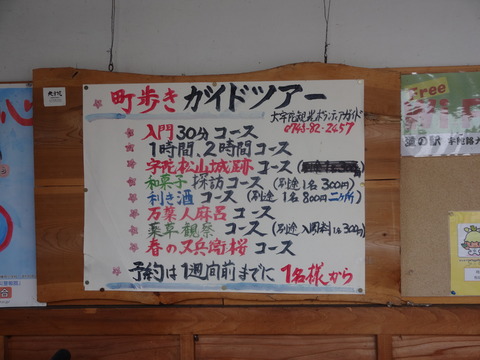 町歩きガイドツアー
大宇陀観光ボランティアガイド
0745-82-2457
入門30分コース
1時間、2時間コース
宇陀松山城跡コース
和菓子探訪コース (別途1名300円)
利き酒コース (別途1名800円二ヶ所)
万葉人麻呂コース
薬草観察コース (別途入園料1名300円)
春の又兵衛桜コース
予約は1週間前までに 1名様から
Free